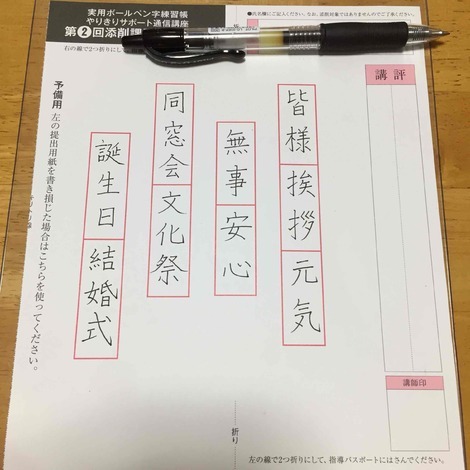 実用ボールペン字練習帳
やりきりサポート通信講座
第2回添削課
右の線で2つ折りにして、
●氏名欄にご記入ください。なお、添削対象ではありませんのでご了承ください。
講評
皆様挨拶元気
無事安心
同窓会文化祭
誕生日結婚式
予備用 左の提出用紙を書き損じた場合はこちらを使ってください。
講師印
折り
左の線で2つ折りにして、指導パスポートにはさんでください。